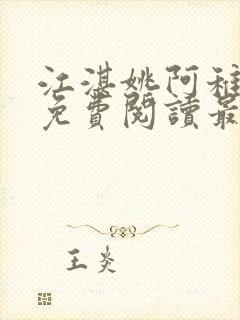 江湛姚阿稚
免費閱讀最
王炎